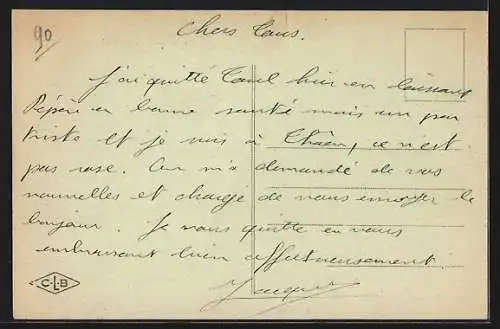 90
Chers Tous.
J'ai quitté hier en laissant
Pépère en bonne santé mais un peu
triste et je suis à Thaon, ce n'est
pas rose. On m'a demandé de vos
nouvelles et chargé de vous envoyer le
bonjour. Je vous quitte en vous
embrassant bien affectueusement.
Jacques
C-L-B